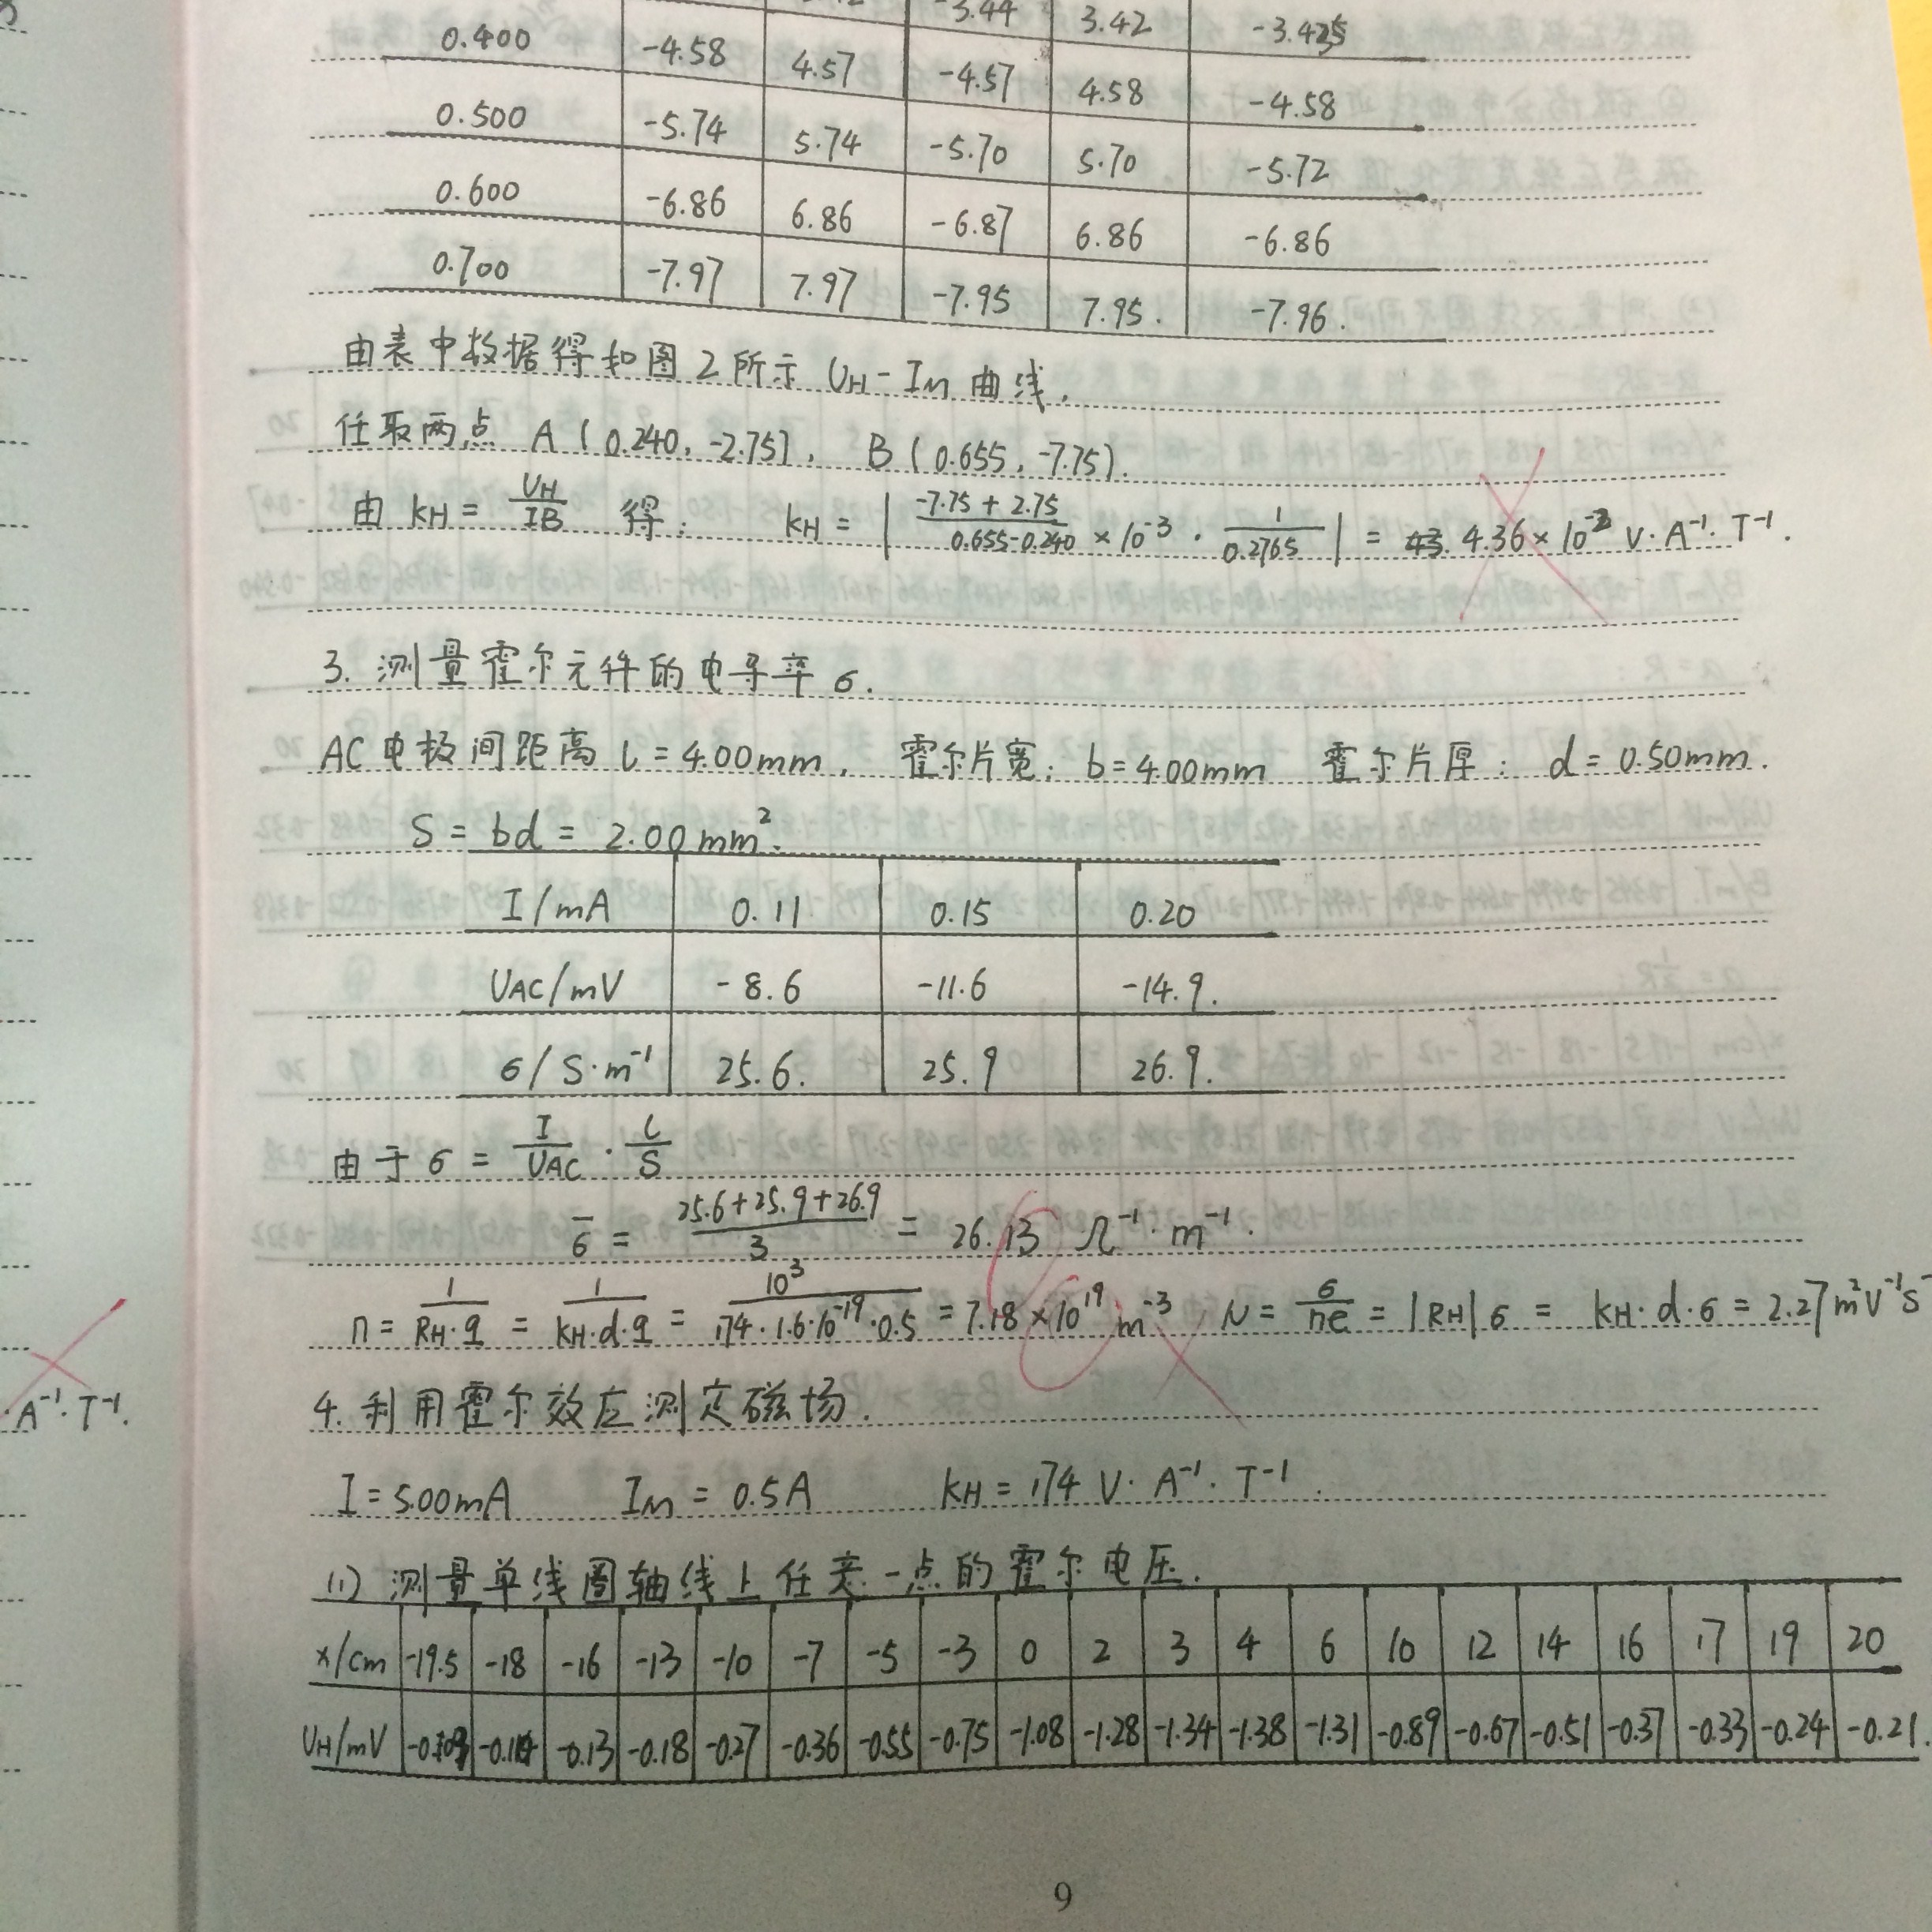 -3.44 3.42 -3.425
0.400 -4.58 4.57 -4.57 4.58 -4.58
0.500 -5.74 5.74 -5.70 5.70 -5.72
0.600 -6.86 6.86 -6.87 6.86 -6.86
0.700 -7.97 7.97 -7.95 7.95. -7.96.
由表中数据得如图2所示 UH-IM 曲线.
任取两点 A(0.240, -2.75), B(0.655, -7.75).
由 KH = UH/IB 得: KH = |(-7.75+2.75)/(0.655-0.240) × 10⁻³ · 1/0.2765| = 4.36×10⁻² V·A⁻¹·T⁻¹.
3. 测量霍尔元件的电导率 σ.
AC电极间距离 l = 4.00mm, 霍尔片宽: b=4.00mm 霍尔片厚: d=0.50mm.
S = bd = 2.00mm².
I/mA 0.11 0.15 0.20
UAC/mV -8.6 -11.6 -14.9.
σ/S·m⁻¹ 25.6. 25.9 26.9.
由于 σ = I/UAC · l/S
σ̄ = (25.6+25.9+26.9)/3 = 26.13 Ω⁻¹·m⁻¹.
n = 1/(RH·q) = 1/(KH·d·q) = 10³/(174·1.6·10⁻¹⁹·0.5) = 7.18×10¹⁹ m⁻³, μ = σ/ne = |RH|σ = KH·d·σ = 2.27 m²V⁻¹S⁻
·A⁻¹·T⁻¹.
4. 利用霍尔效应测定磁场.
I=5.00mA IM = 0.5A KH = 174 V·A⁻¹·T⁻¹.
(1) 测量单线圈轴线上任意一点的霍尔电压.
x/cm -19.5 -18 -16 -13 -10 -7 -5 -3 0 2 3 4 6 10 12 14 16 17 19 20
UH/mV -0.13 -0.18 -0.27 -0.36 -0.55 -0.75 -1.08 -1.28 -1.34 -1.38 -1.31 -0.89 -0.67 -0.51 -0.37 -0.33 -0.24 -0.21.
9